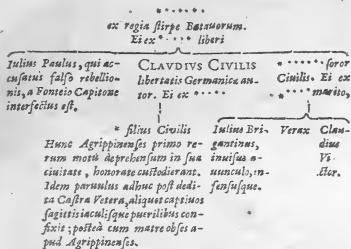 * * * * * *
ex regia stirpe Batauorum.
Ei ex * * * * liberi
Iulius Paulus, qui ac-
cusatus falso rebellio-
nis, a Fonteio Capitone
interfectus est.
CLAVDIVS CIVILIS
libertatis Germanicæ au-
tor. Ei ex * * * * * *
* * * * * * soror
Civilis. Ei ex
* * * * * marito,
* filius Civilis
Hunc Agrippinenses primo re-
rum motu deprehensum in sua
ciuitate, honorate custodierant.
Idem paruulus adhuc post dedi-
ta Castra Vetera, aliquet captiuos
sagittis iaculisque puerilibus con-
fixit; posteà cum matre obses a-
pud Agrippinenses.
Iulius Bri-
gantinus,
inuisus a-
uunculo, in-
fensusque.
Verax
Clau-
dius
Vi-
ctor.